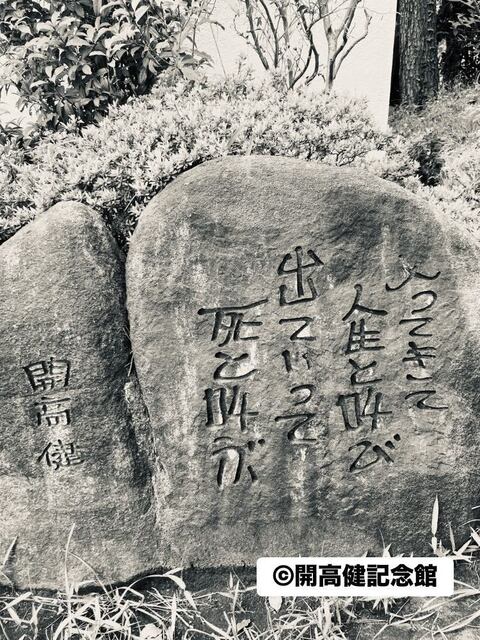 入ってきて
人生と叫び
出ていって
死と叫ぶ
開高健
©開高健記念館